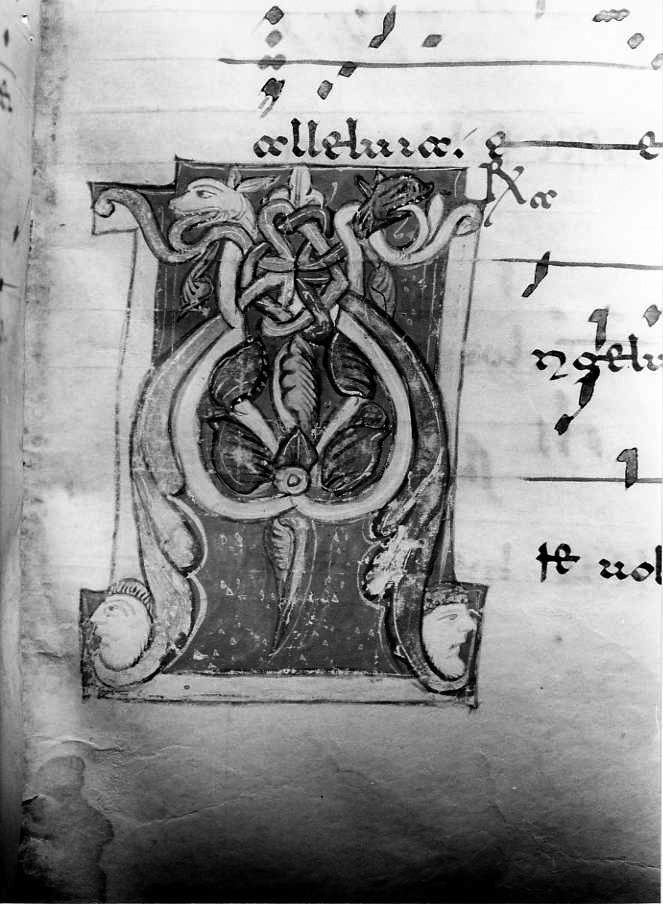 alleluia. e e
℟ a
ngelu
te uol